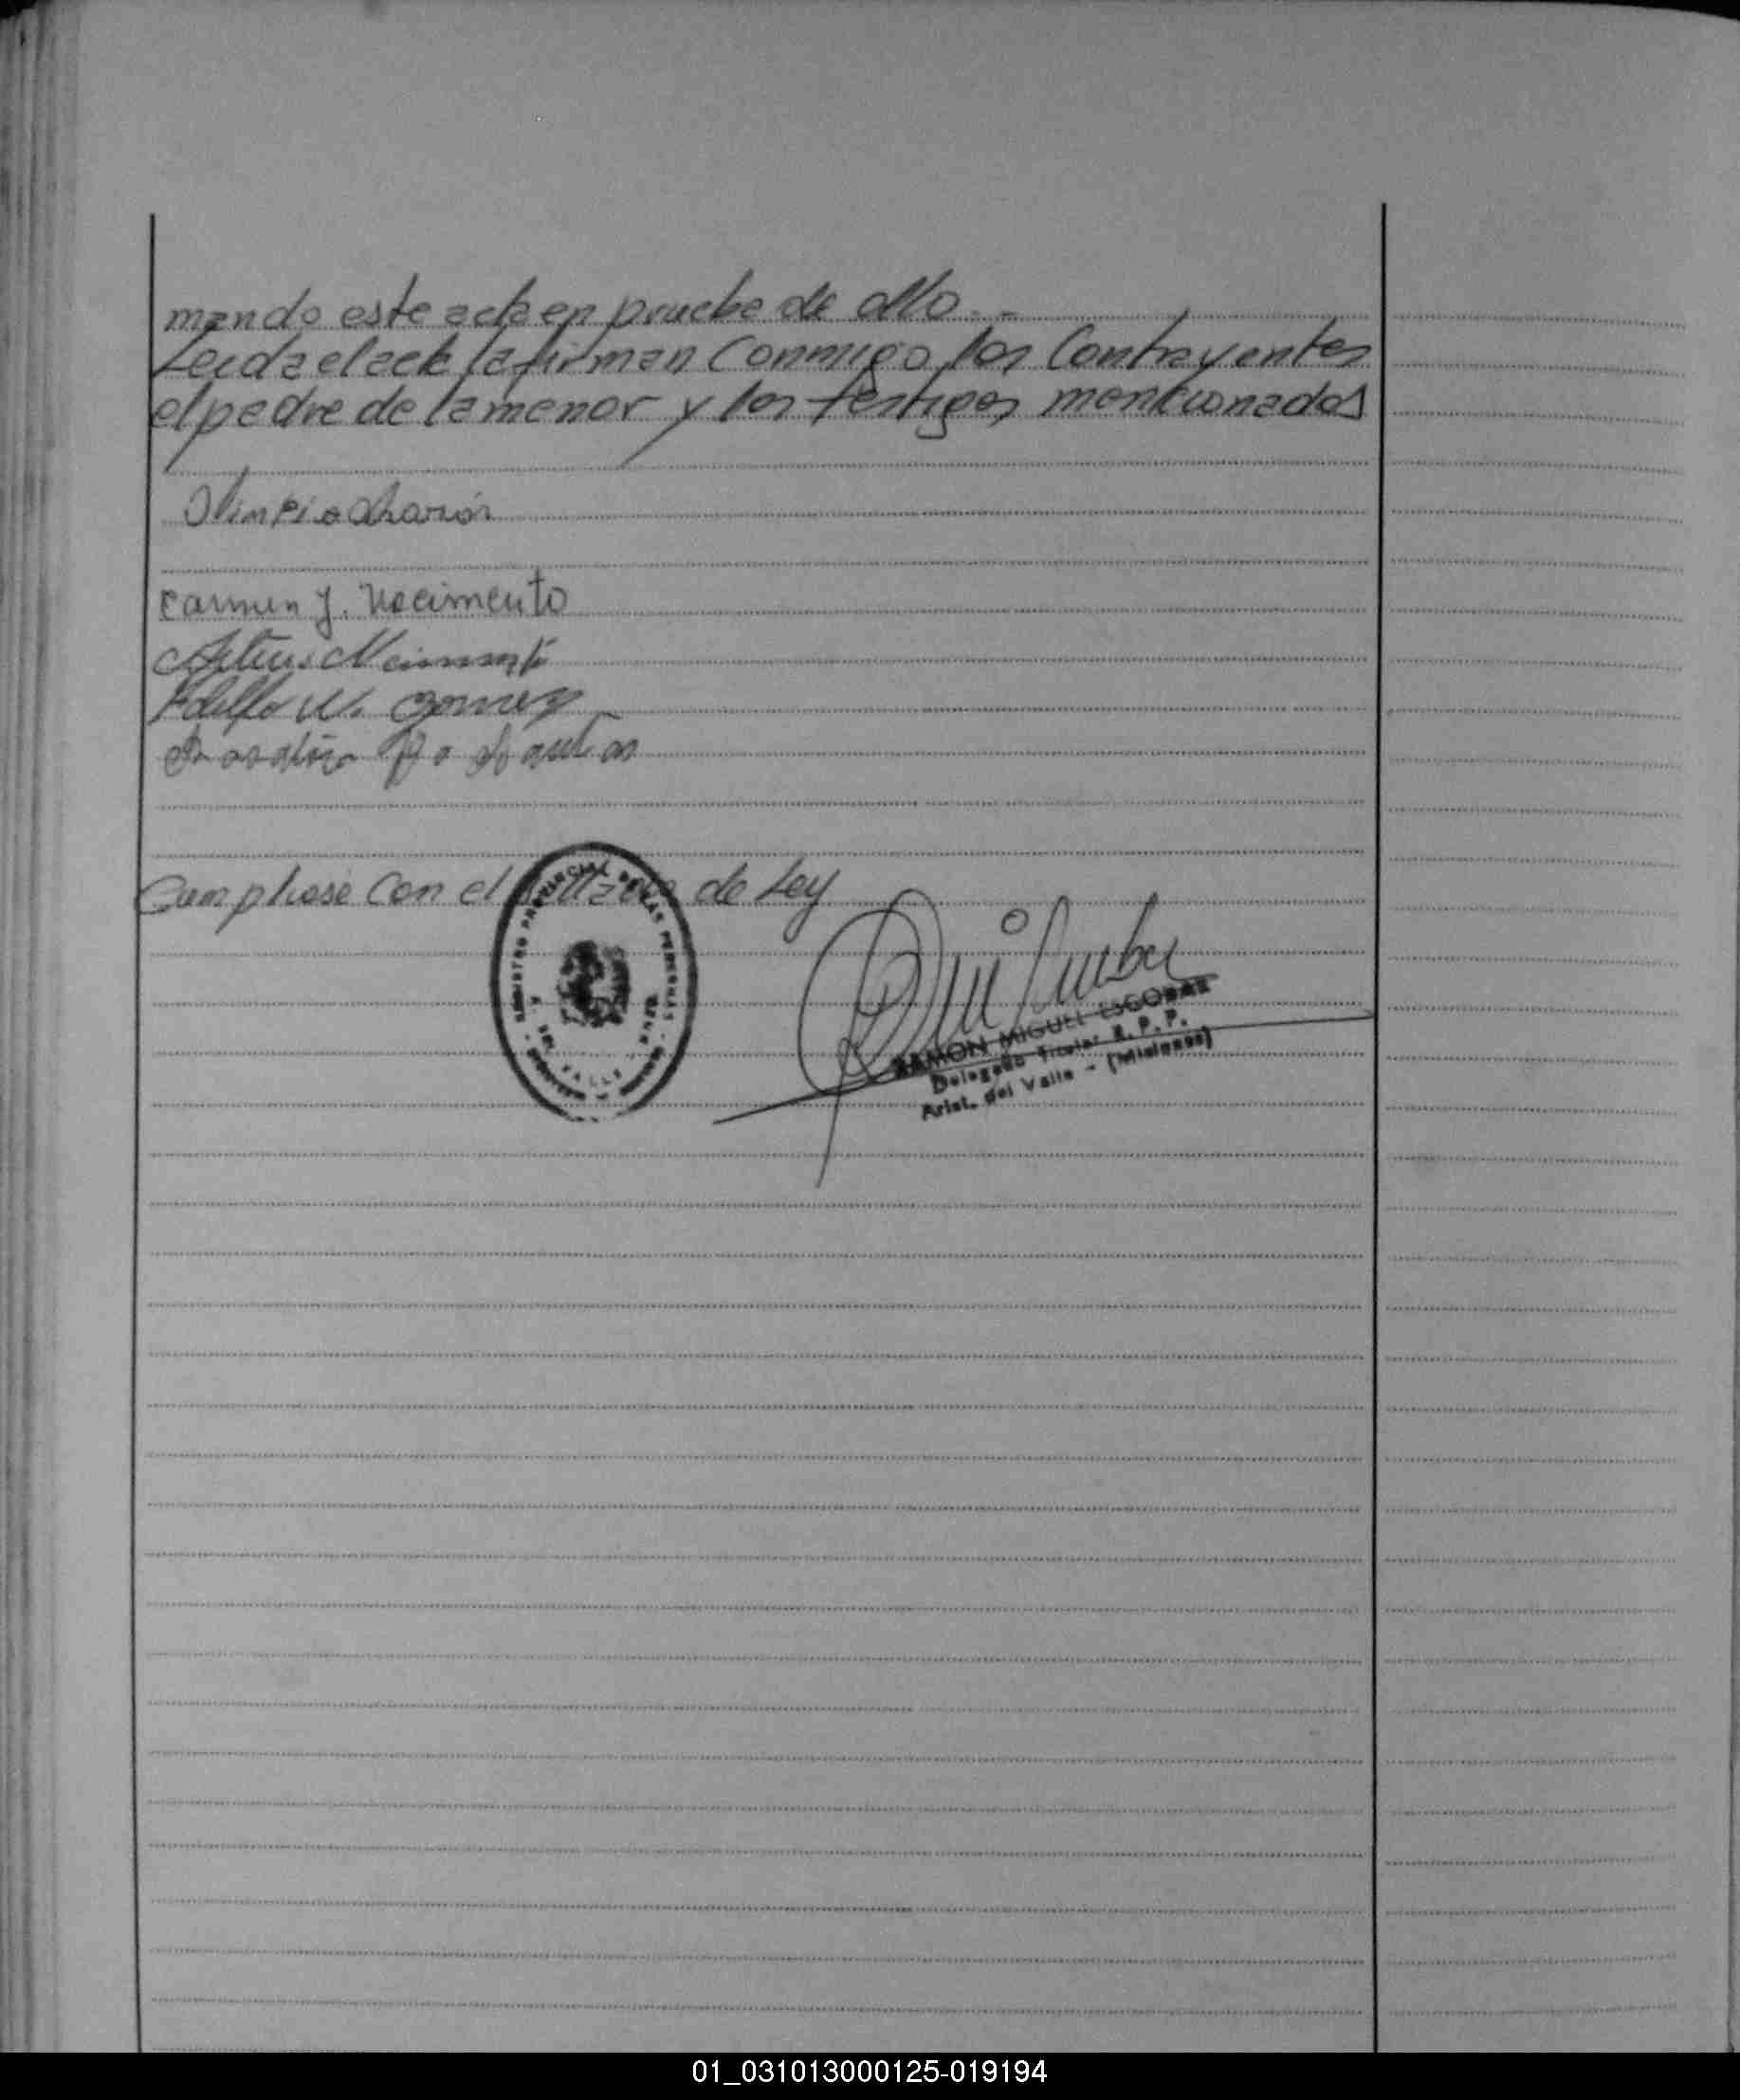 mando este acta en prueba de ello. -
Leida el acta la firman Conmigo, los Contrayentes
el padre de la menor y los testigos mencionados
Olimpio
Carmen J. Nacimento
Nacimento
Adelfo W. Gomez
Cumpliose con el de Ley
REGISTRO PROVINCIAL DE LAS PERSONAS
DEL VALLE
RAMON MIGUEL ESCOBAR
Delegado Titular R. P. P.
Arist. del Valle - (Misiones)
01_031013000125-019194